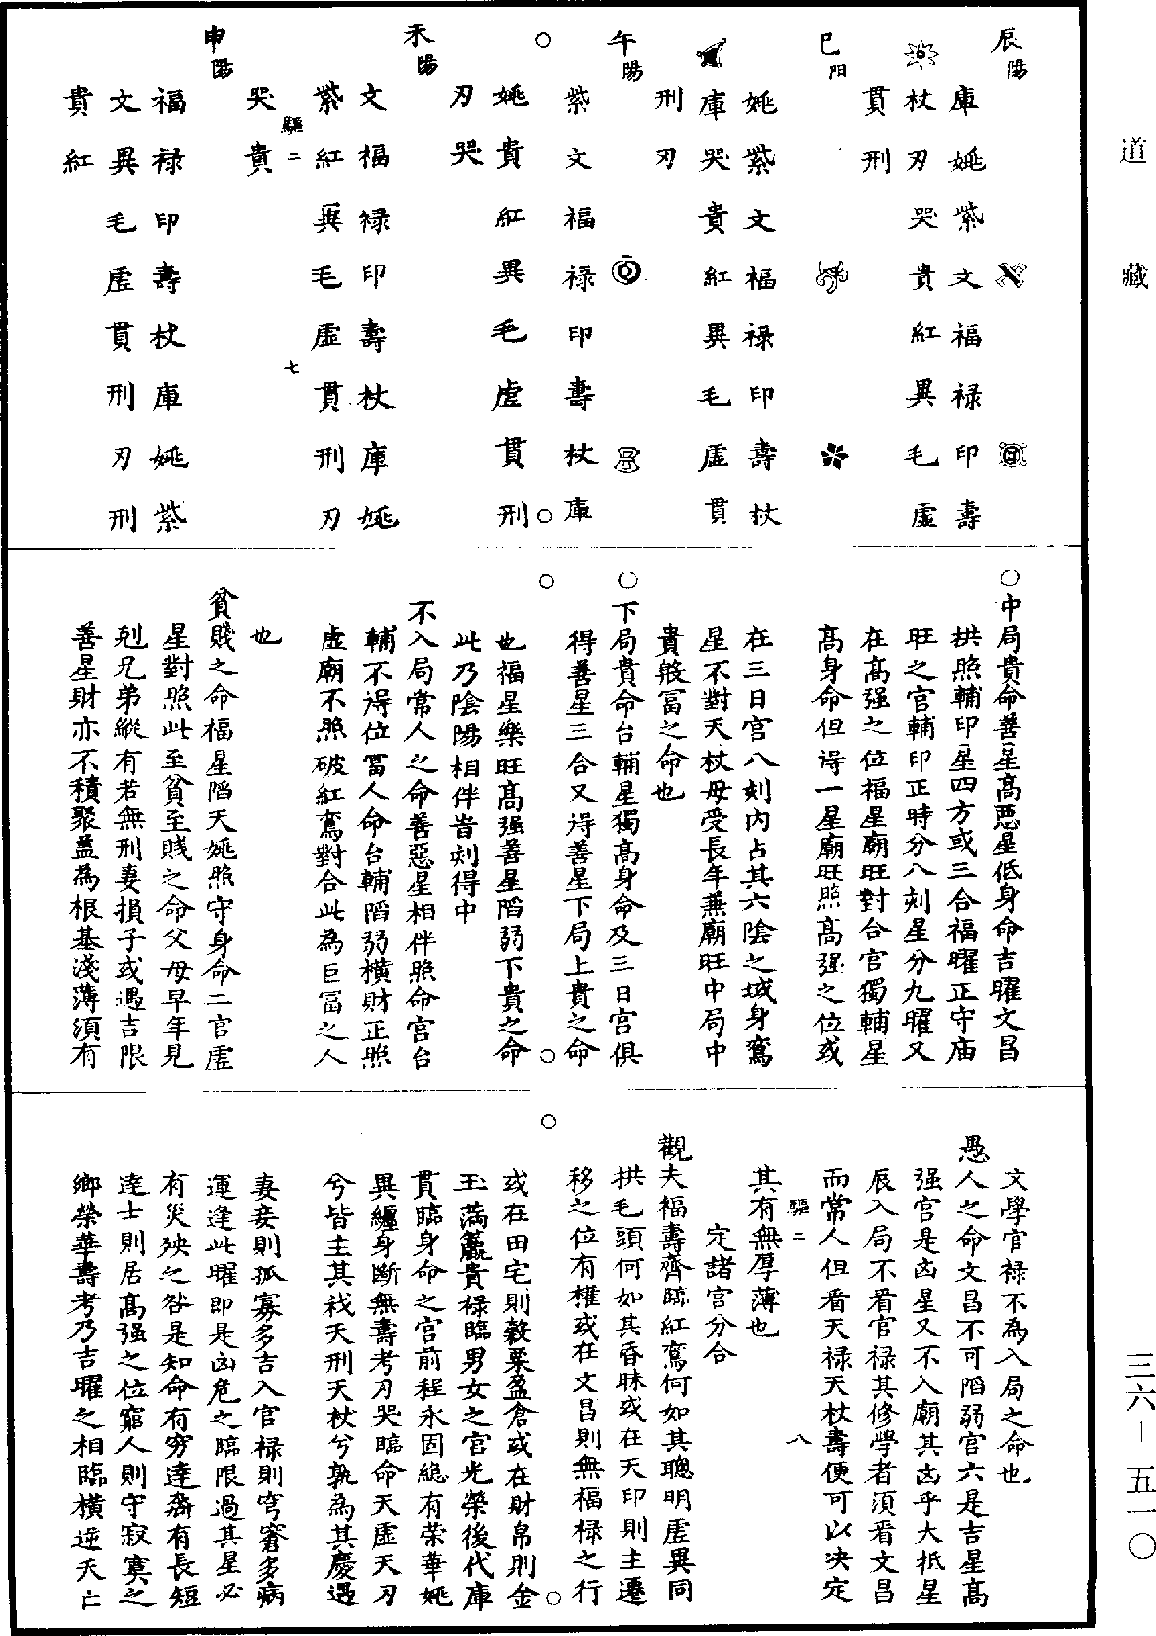 道藏
三六—五一〇
辰陽
庫姚紫文福禄印壽
杖刃哭貴紅異毛虛
貫刑
巳阳
姚紫文福禄印壽杖
庫哭貴紅異毛虛貫
刑刃
午陽
紫文福禄印壽杖庫
姚貴紅異毛虛貫刑
刃哭
未陽
文福禄印壽杖庫姚
紫紅異毛虛貫刑刃
哭貴
驅二 七
申陽
福禄印壽杖庫姚紫
文異毛虛貫刑刃刑
貴紅
○中局貴命善星高惡星低身命吉曜文昌
拱照輔印星四方或三合福曜正守庙
旺之官輔印正時分八刻星分九曜又
在高强之位福星廟旺對合官獨輔星
高身命但得一星廟旺照高强之位或
在三日宫八刻内占其六陰之域身鸞
星不對天杖毋受長年兼廟旺中局中
貴敗冨之命也
○下局貴命台輔星獨高身命及三日宫俱
得善星三合又得善星下局上貴之命
也福星樂旺高强善星陷弱下貴之命
此乃陰陽相伴皆刻得中
不入局常人之命善惡星相伴照命宫台
輔不得位冨人命台輔陷弱橫財正照
虛廟不照破紅鸞對合此為巨冨之人
也
貧賤之命福星陷天姚照守身命二官虛
星對照此至貧至賤之命父母早年見
剋兄弟縱有若無刑妻損子或遇吉限
善星財亦不積聚蓋為根基淺薄須有
文學官禄不為入局之命也
愚人之命文昌不可陷弱官六是吉星高
强宫是凶星又不入廟其凶乎大抵星
辰入局不看官禄其修學者須看文昌
而常人但看天禄天杖壽便可以决定
驅二 八
其有無厚薄也
定諸宫分合
觀夫福壽齊臨紅鸞何如其聰明虛異同
拱毛頭何如其昏昧或在天印則主遷
移之位有權或在文昌則無福禄之行
或在田宅則穀粟盈倉或在財帛則金
玉滿籯貴禄臨男女之官光榮後代庫
貫臨身命之官前程永固總有榮華姚
異纏身斷無壽考刃哭臨命天虛天刃
兮皆主其戕天刑天杖兮孰為其慶遇
妻妾則孤寡多吉入官禄則穹窘多病
運逢此曜即是凶危之臨限過其星必
有災殃之咎是知命有穷達裔有長短
達士則居高强之位窮人則守寂寞之
鄉榮華壽考乃吉曜之相臨橫逆天亡